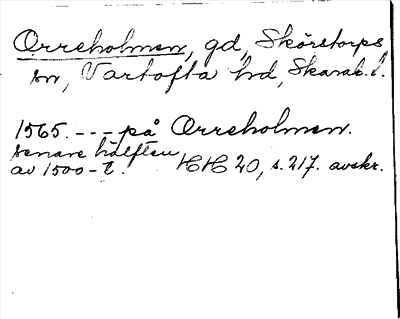 Orreholmen, gd, Skörstorps
sn, Vartofta hd, Skarab. l.
1565. - - - på Orreholmen.
senare hälften
av 1500-t. HH 20, s. 217. avskr.